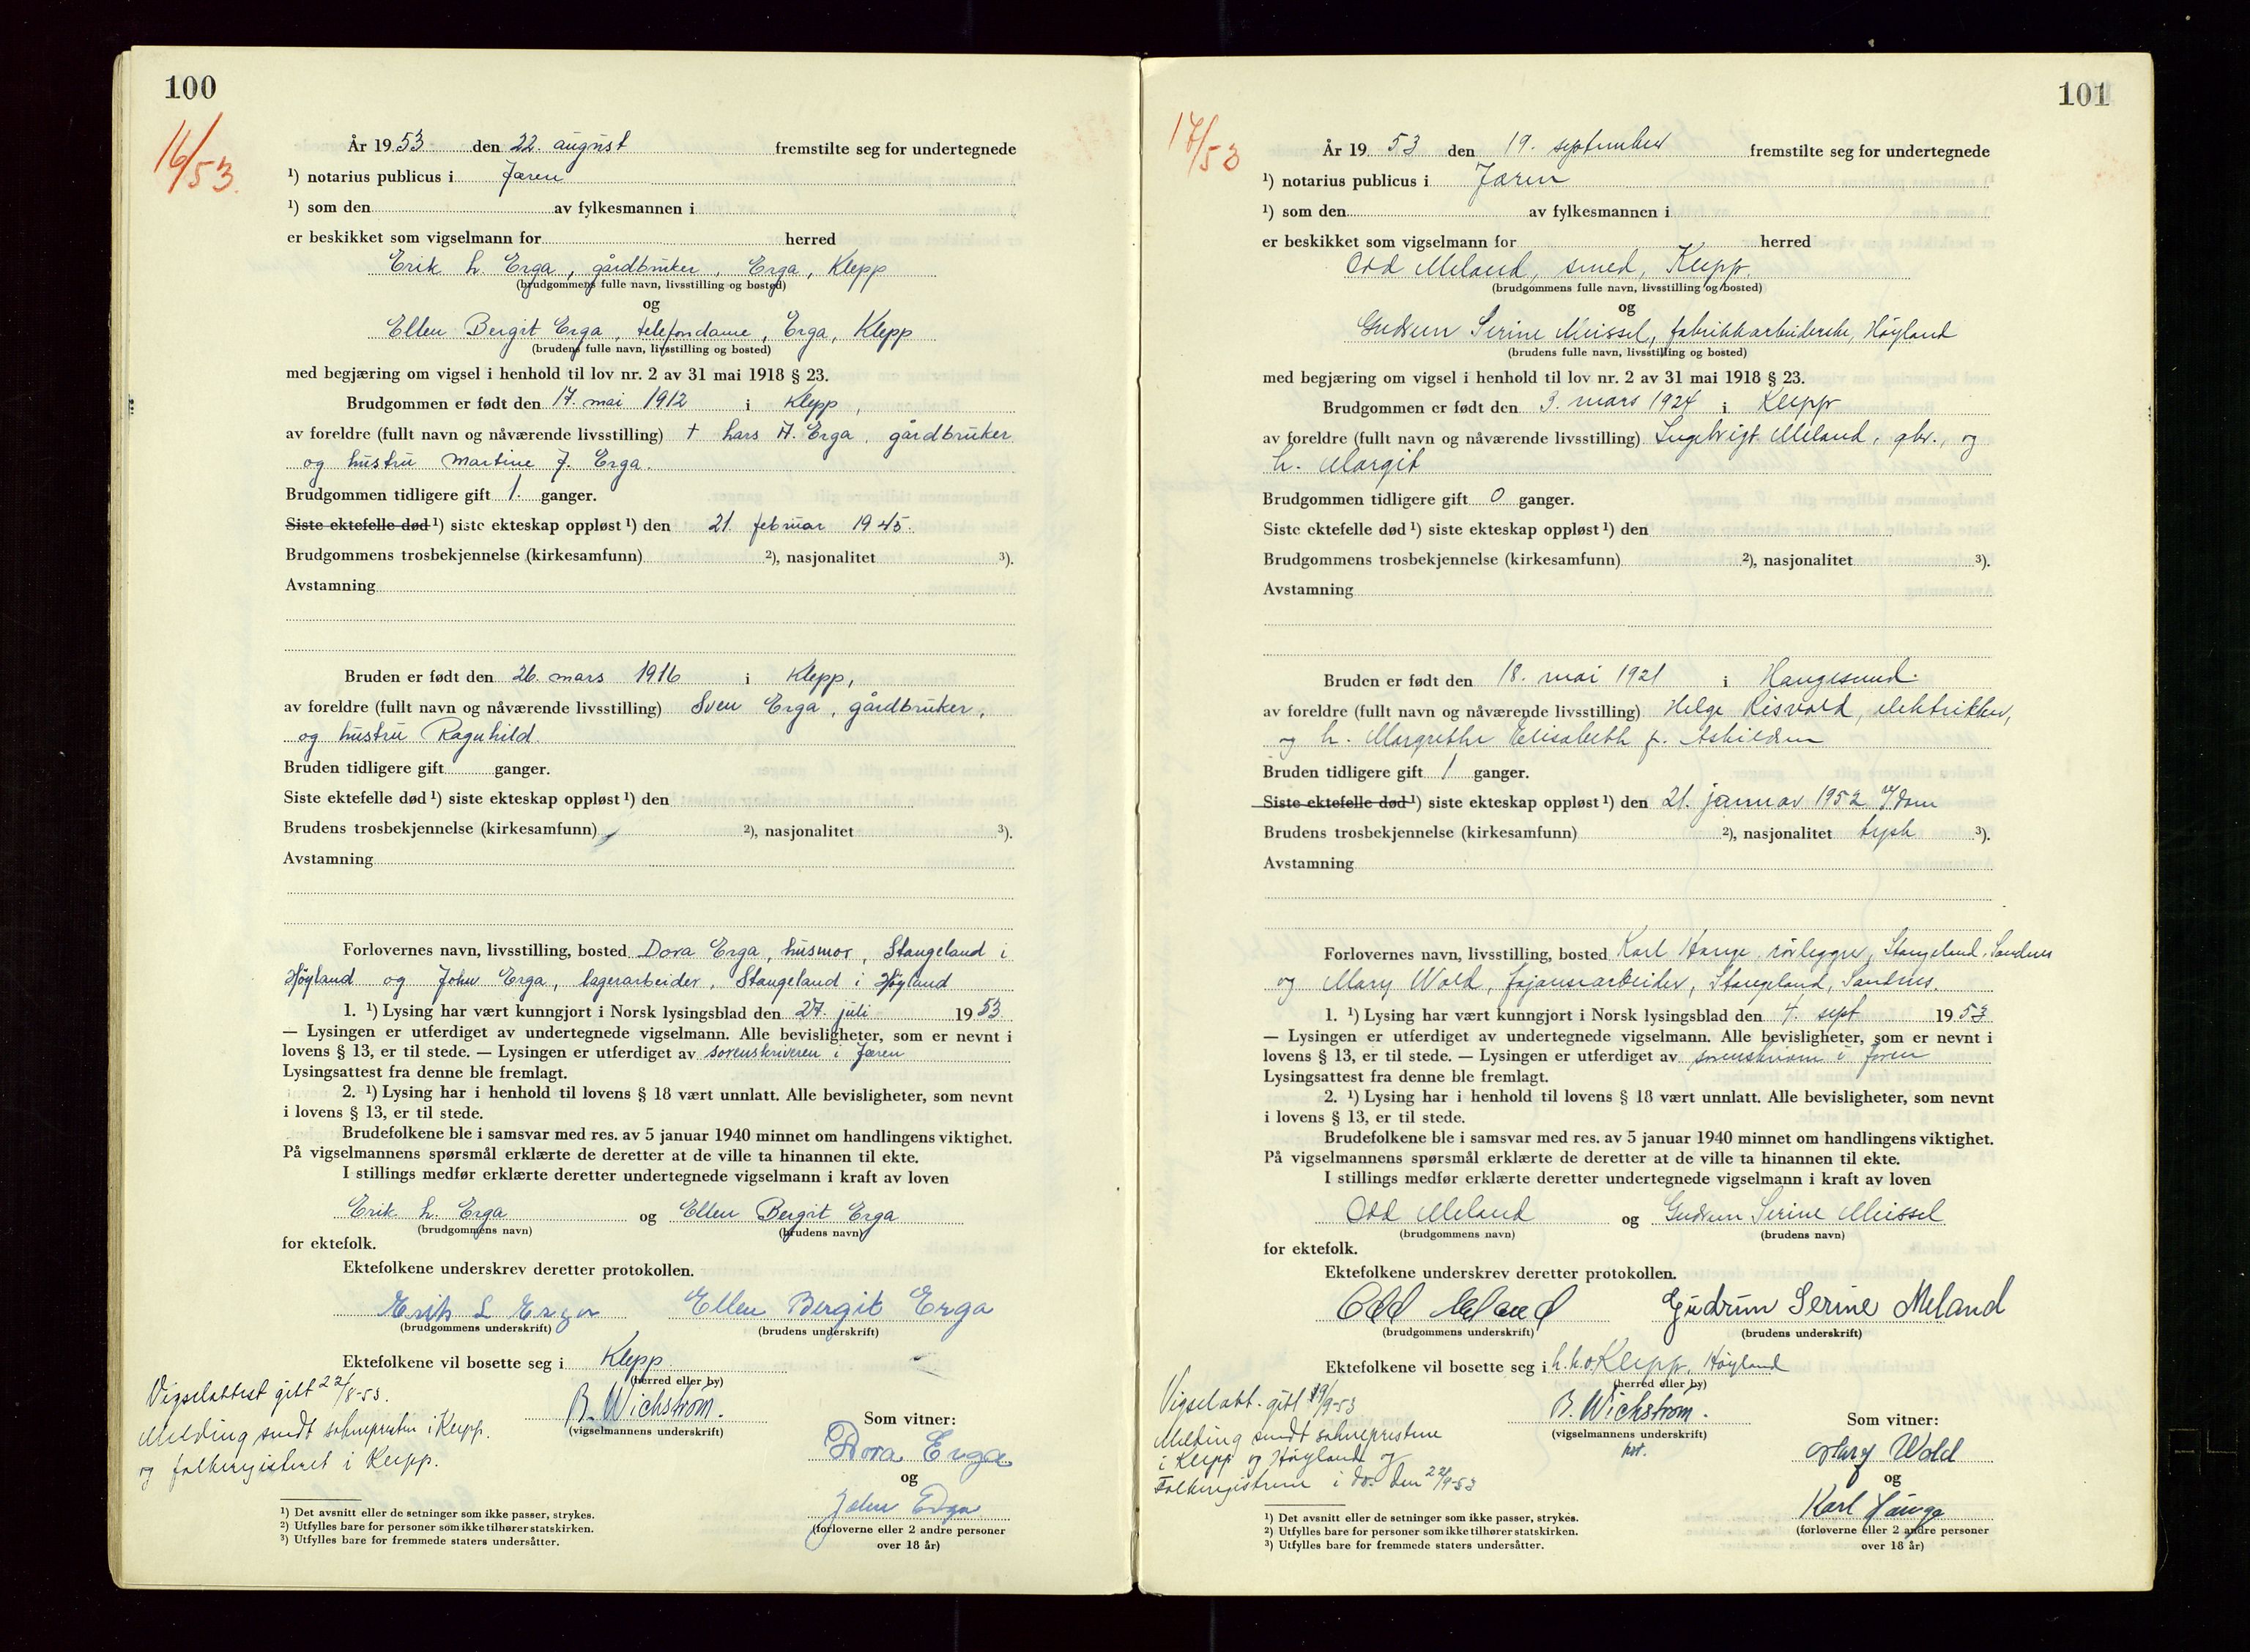 100
16/53.
År 1953 den 22. august fremstilte seg for undertegnede
¹) notarius publicus i Jæren
¹) som den av fylkesmannen i
er beskikket som vigselmann for herred
Erik L. Erga, gårdbruker, Erga, Klepp
(brudgommens fulle navn, livsstilling og bosted)
og
Ellen Bergit Erga, telefondame, Erga, Klepp
(brudens fulle navn, livsstilling og bosted)
med begjæring om vigsel i henhold til lov nr. 2 av 31 mai 1918 § 23.
Brudgommen er født den 17. mai 1912 i Klepp,
av foreldre (fullt navn og nåværende livsstilling) † Lars A. Erga, gårdbruker
og hustru Martine J. Erga.
Brudgommen tidligere gift 1. ganger.
Siste ektefelle død ¹) siste ekteskap oppløst ¹) den 21. februar 1945.
Brudgommens trosbekjennelse (kirkesamfunn) ²), nasjonalitet ³).
Avstamning
Bruden er født den 26. mars 1916 i Klepp,
av foreldre (fullt navn og nåværende livsstilling) Sven Erga, gårdbruker,
og hustru Ragnhild.
Bruden tidligere gift ganger.
Siste ektefelle død ¹) siste ekteskap oppløst ¹) den
Brudens trosbekjennelse (kirkesamfunn) ²), nasjonalitet ³).
Avstamning
Forlovernes navn, livsstilling, bosted Dora Erga, husmor, Stangeland i
Høyland og John Erga, lagerarbeider, Stangeland i Høyland
1. ¹) Lysing har vært kunngjort i Norsk lysingsblad den 27. juli 1953
— Lysingen er utferdiget av undertegnede vigselmann. Alle bevisligheter, som er nevnt i
lovens § 13, er til stede. — Lysingen er utferdiget av sorenskriveren i Jæren
Lysingsattest fra denne ble fremlagt.
2. ¹) Lysing har i henhold til lovens § 18 vært unnlatt. Alle bevisligheter, som nevnt
i lovens § 13, er til stede.
Brudefolkene ble i samsvar med res. av 5 januar 1940 minnet om handlingens viktighet.
På vigselmannens spørsmål erklærte de deretter at de ville ta hinannen til ekte.
I stillings medfør erklærte deretter undertegnede vigselmann i kraft av loven
Erik L. Erga og Ellen Bergit Erga
(brudgommens navn) (brudens navn)
for ektefolk.
Ektefolkene underskrev deretter protokollen.
Erik L Erga Ellen Bergit Erga
(brudgommens underskrift) (brudens underskrift)
Ektefolkene vil bosette seg i Klepp
(herred eller by)
Vigselattest gitt 22/8-53.
Melding sendt soknepresten i Klepp.
og folkeregisteret i Klepp.
B. Wichstrøm.
(vigselmannens underskrift)
Som vitner:
Dora Erga
og
John Erga
(forloverne eller 2 andre personer
over 18 år)
¹) Det avsnitt eller de setninger som ikke passer, strykes.
²) Utfylles bare for personer som ikke tilhører statskirken.
³) Utfylles bare for fremmede staters undersåtter.
101
17/53
År 1953 den 19. september fremstilte seg for undertegnede
¹) notarius publicus i Jæren
¹) som den av fylkesmannen i
er beskikket som vigselmann for herred
Odd Meland, smed, Klepp.
(brudgommens fulle navn, livsstilling og bosted)
og
Gudrun Serine Meissel, fabrikkarbeiderske, Høyland
(brudens fulle navn, livsstilling og bosted)
med begjæring om vigsel i henhold til lov nr. 2 av 31 mai 1918 § 23.
Brudgommen er født den 3. mars 1924 i Klepp
av foreldre (fullt navn og nåværende livsstilling) Ingebrigt Meland, gbr., og
h. Margit
Brudgommen tidligere gift 0 ganger.
Siste ektefelle død ¹) siste ekteskap oppløst ¹) den
Brudgommens trosbekjennelse (kirkesamfunn) ²), nasjonalitet ³).
Avstamning
Bruden er født den 18. mai 1921 i Haugesund.
av foreldre (fullt navn og nåværende livsstilling) Helge Risvold, elektriker,
og h. Margrethe Elisabeth f. Askildsen
Bruden tidligere gift 1 ganger.
Siste ektefelle død ¹) siste ekteskap oppløst ¹) den 21. januar 1952 v/dom
Brudens trosbekjennelse (kirkesamfunn) ²), nasjonalitet tysk ³).
Avstamning
Forlovernes navn, livsstilling, bosted Karl Hauge, rørlegger, Stangeland, Sandnes
og Mary Wold, fajansearbeider, Stangeland, Sandnes.
1. ¹) Lysing har vært kunngjort i Norsk lysingsblad den 4. sept 1953
— Lysingen er utferdiget av undertegnede vigselmann. Alle bevisligheter, som er nevnt i
lovens § 13, er til stede. — Lysingen er utferdiget av sorenskriveren i Jæren
Lysingsattest fra denne ble fremlagt.
2. ¹) Lysing har i henhold til lovens § 18 vært unnlatt. Alle bevisligheter, som nevnt
i lovens § 13, er til stede.
Brudefolkene ble i samsvar med res. av 5 januar 1940 minnet om handlingens viktighet.
På vigselmannens spørsmål erklærte de deretter at de ville ta hinannen til ekte.
I stillings medfør erklærte deretter undertegnede vigselmann i kraft av loven
Odd Meland og Gudrun Serine Meissel
(brudgommens navn) (brudens navn)
for ektefolk.
Ektefolkene underskrev deretter protokollen.
Odd Meland Gudrun Serine Meland
(brudgommens underskrift) (brudens underskrift)
Ektefolkene vil bosette seg i Klepp, Høyland
(herred eller by)
Vigselatt. gitt 19/9-53
Melding sendt sokneprestene
i Klepp og Høyland og
Folkeregistrene i do. den 22/9-53
B. Wichstrøm.
(vigselmannens underskrift)
Som vitner:
Mary Wold
og
Karl Hauge
(forloverne eller 2 andre personer
over 18 år)
¹) Det avsnitt eller de setninger som ikke passer, strykes.
²) Utfylles bare for personer som ikke tilhører statskirken.
³) Utfylles bare for fremmede staters undersåtter.